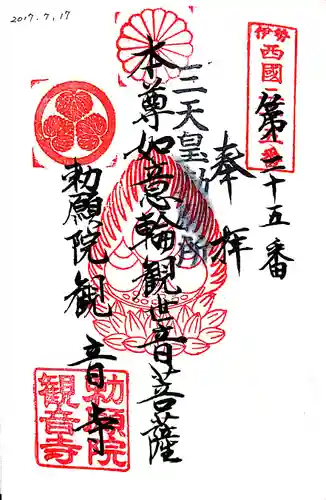 2017.7.17
伊勢
西國
第二十五番
奉拝
三天皇勅願所
本尊如意輪観世音菩薩
勅願院観音寺
勅願院
観音寺